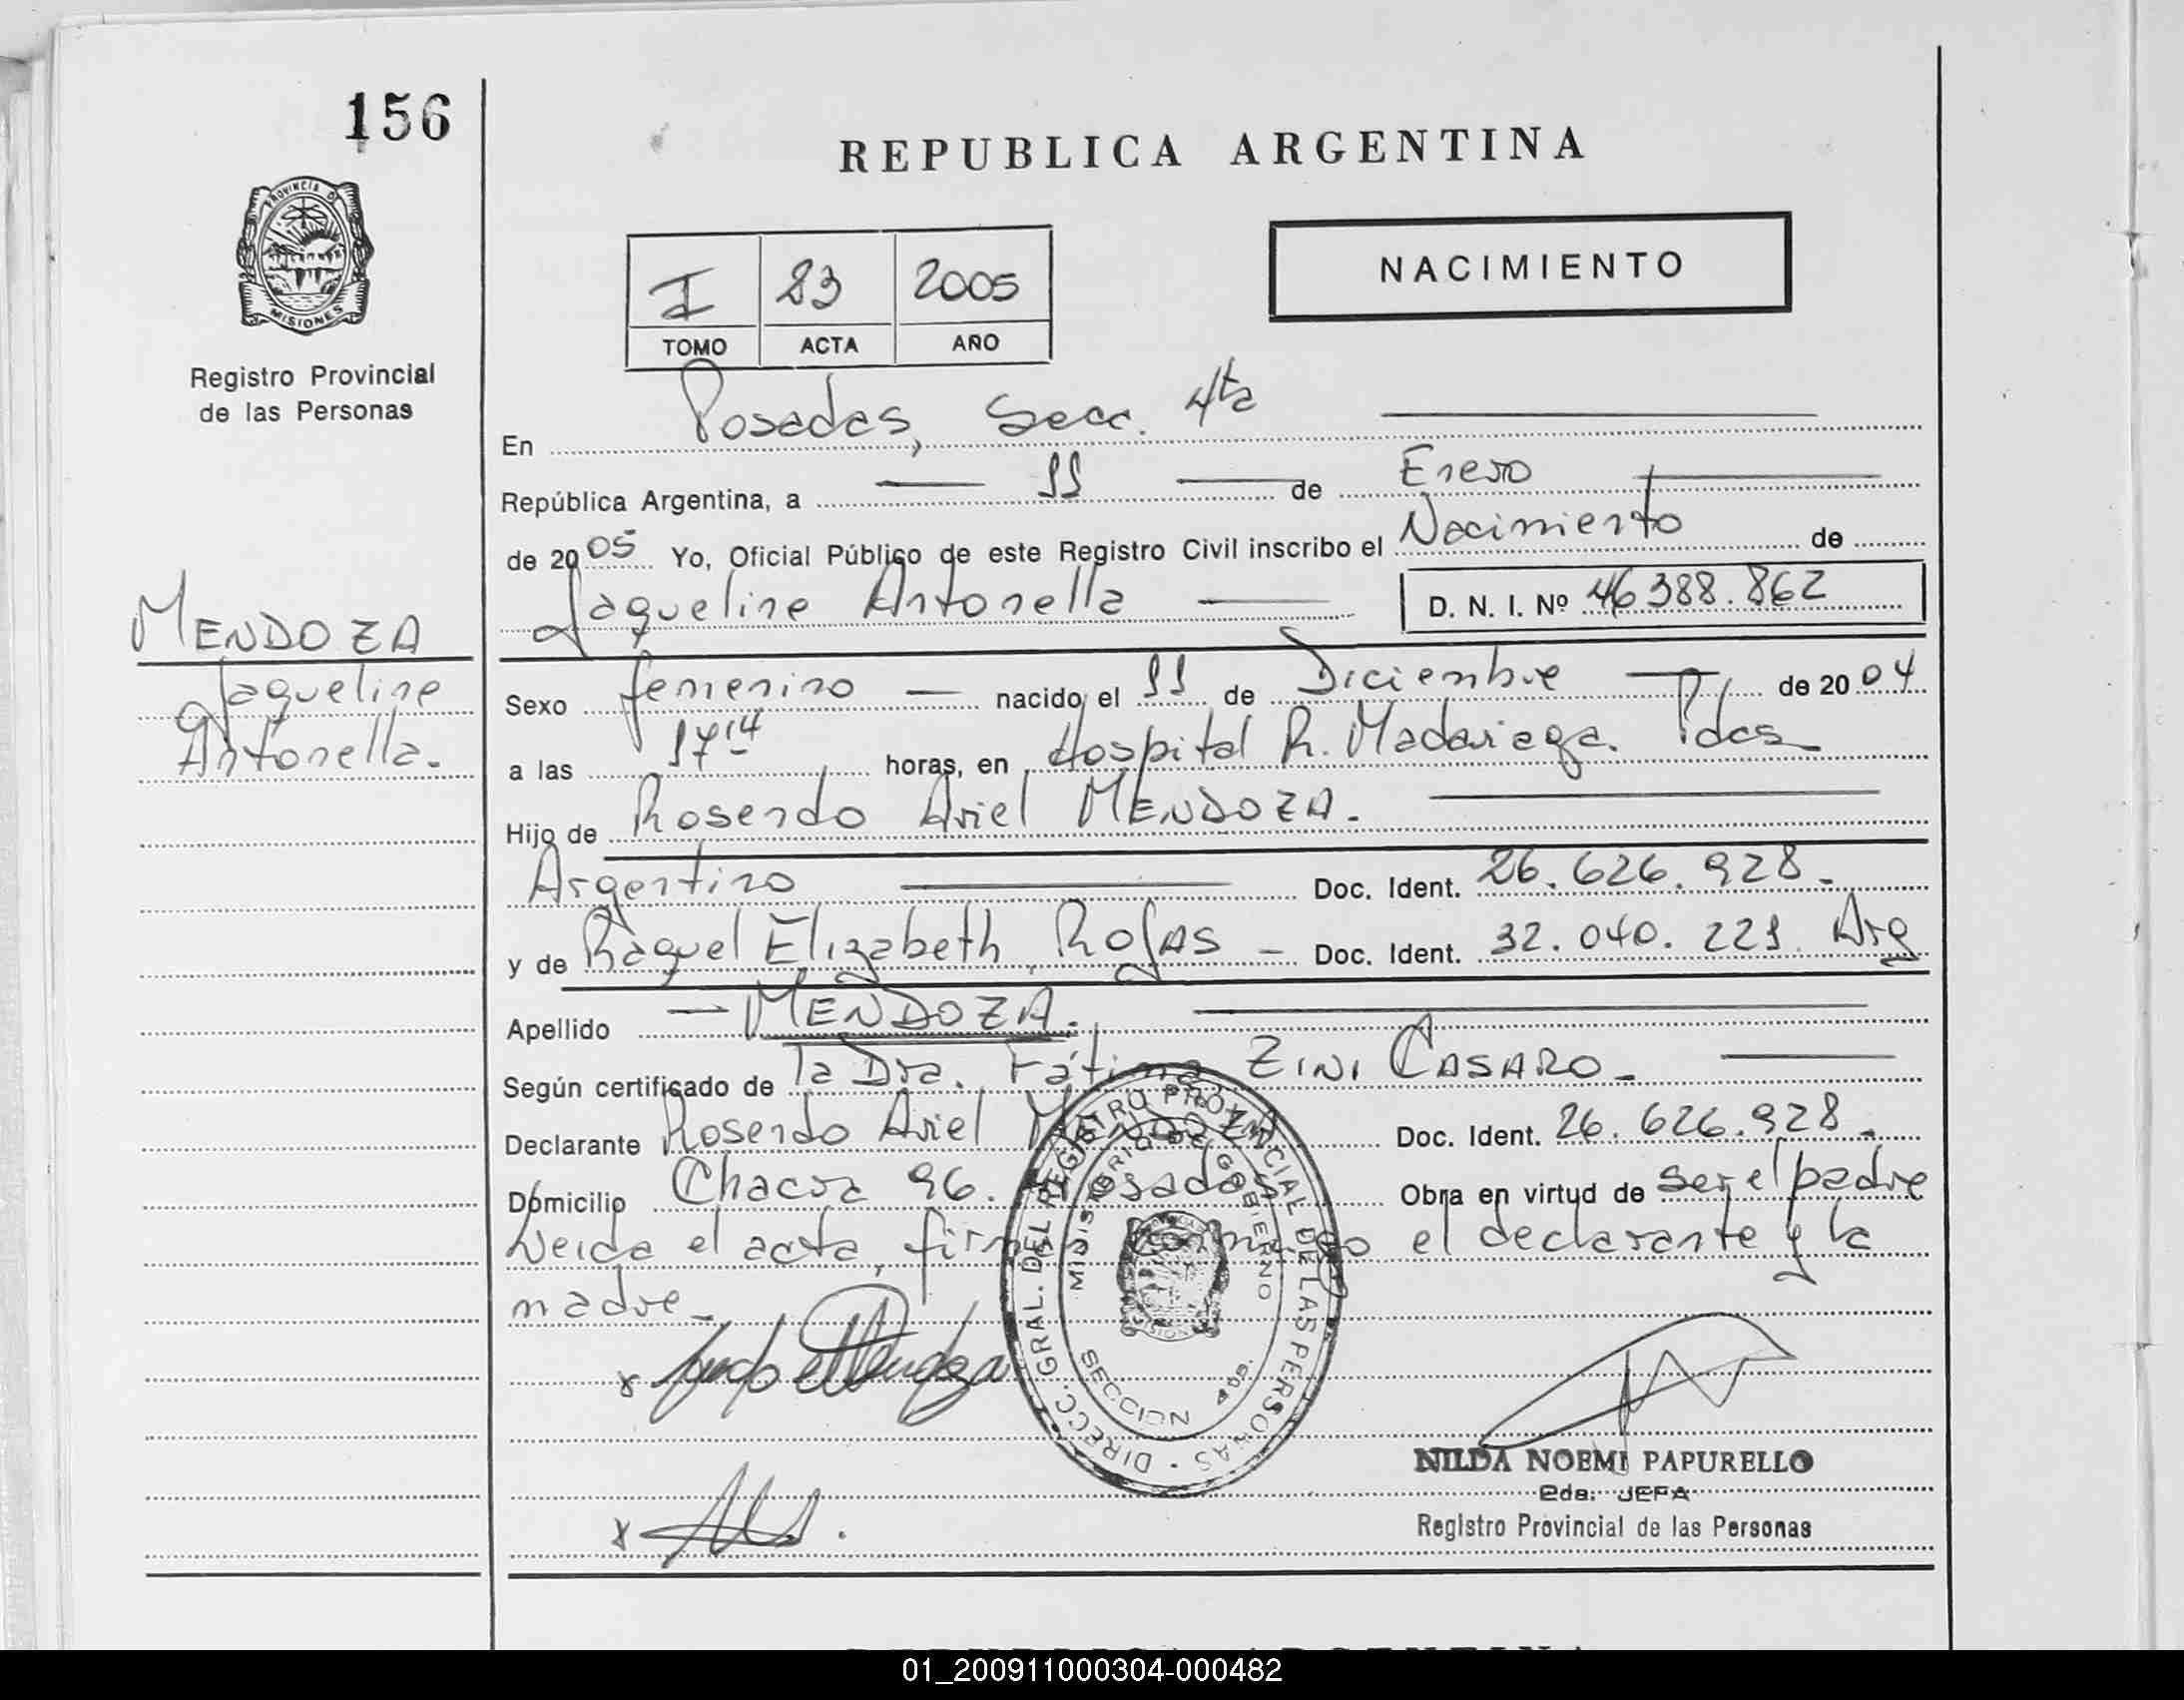 156
REPUBLICA ARGENTINA
PROVINCIA DE
MISIONES
Registro Provincial
de las Personas
I 23 2005
TOMO ACTA AÑO
NACIMIENTO
En Posadas, Secc. 4ta
República Argentina, a 11 de Enero
de 2005 Yo, Oficial Público de este Registro Civil inscribo el Nacimiento de
Jaqueline Antonella D. N. I. Nº 46388.862
MENDOZA
Jaqueline
Antonella.
Sexo femenino nacido el 11 de Diciembre de 2004
a las 17 14 horas, en Hospital R. Madariaga. Pdas
Hijo de Rosendo Ariel MENDOZA.
Argentino Doc. Ident. 26.626.928.
y de Raquel Elizabeth ROJAS - Doc. Ident. 32.040.221. Arg
Apellido - MENDOZA.
Según certificado de la Dra. Fátima ZINI CASARO-
Declarante Rosendo Ariel MENDOZA Doc. Ident. 26.626.928.
Domicilio Chacra 96. Posadas Obra en virtud de ser el padre
Leida el acta, firman conmigo el declarante y la
madre-
DIRECC. GRAL. DEL REGISTRO PROVINCIAL DE LAS PERSONAS
MINISTERIO DE GOBIERNO
SECCION
NILDA NOEMI PAPURELLO
2da. JEFA
Registro Provincial de las Personas
01_200911000304-000482